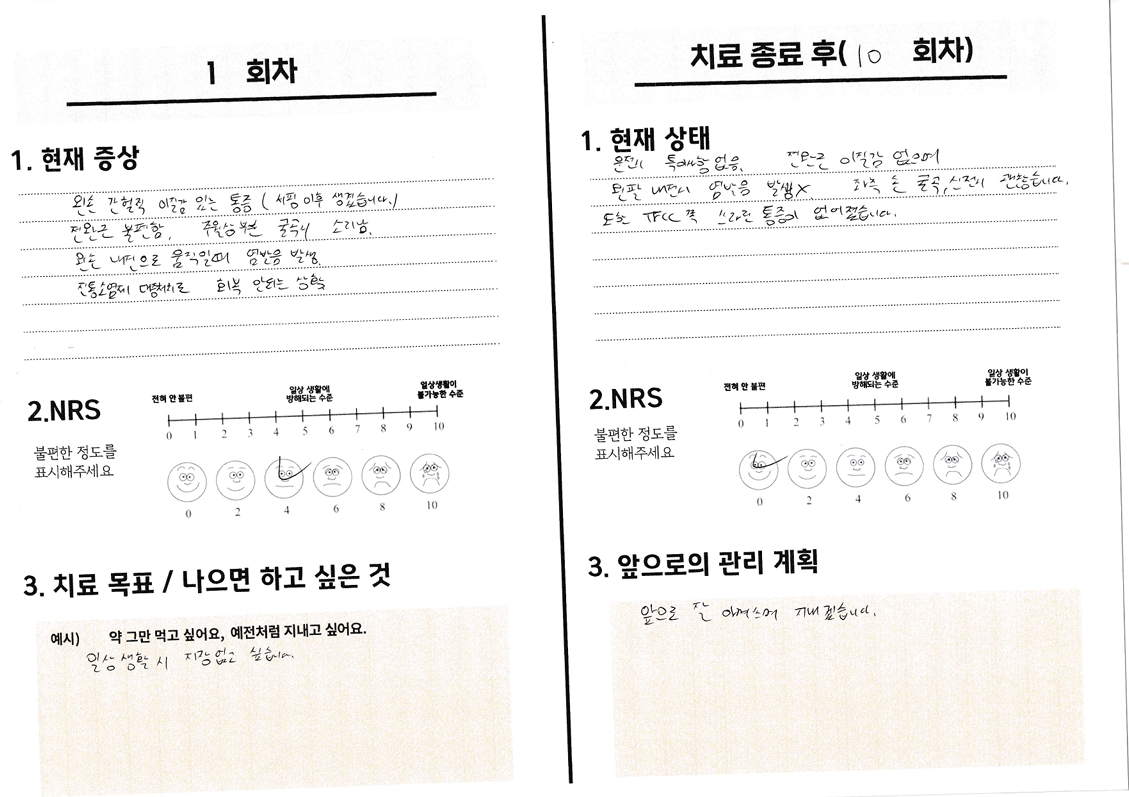 1 회차
1. 현재 증상
왼손 간헐적 이질감 있는 통증 (서핑 이후 생겼습니다.)
전완근 불편함, 주월상부은 굴곡시 소리남.
왼손 내번으로 움직일때 염발음 발생.
진통소염제 대증치료 회복 안되는 상황
2.NRS
불편한 정도를
표시해주세요
전혀 안 불편
일상 생활에
방해되는 수준
일상생활이
불가능한 수준
0 1 2 3 4 5 6 7 8 9 10
0 2 4 6 8 10
3. 치료 목표 / 나으면 하고 싶은 것
예시) 약 그만 먹고 싶어요, 예전처럼 지내고 싶어요.
일상생활 시 지장없고 싶습니다.
치료 종료 후( 10 회차)
1. 현재 상태
운전시 특해함 없음, 전완근 이질감 없으며
왼팔 내번시 염발음 발생X 좌측 손 굴곡,신전시 괜찮습니다.
또는 TFCC쪽 쓰라린 통증이 없어졌습니다.
2.NRS
불편한 정도를
표시해주세요
전혀 안 불편
일상 생활에
방해되는 수준
일상생활이
불가능한 수준
0 1 2 3 4 5 6 7 8 9 10
0 2 4 6 8 10
3. 앞으로의 관리 계획
앞으로 잘 아껴쓰며 지내겠습니다.